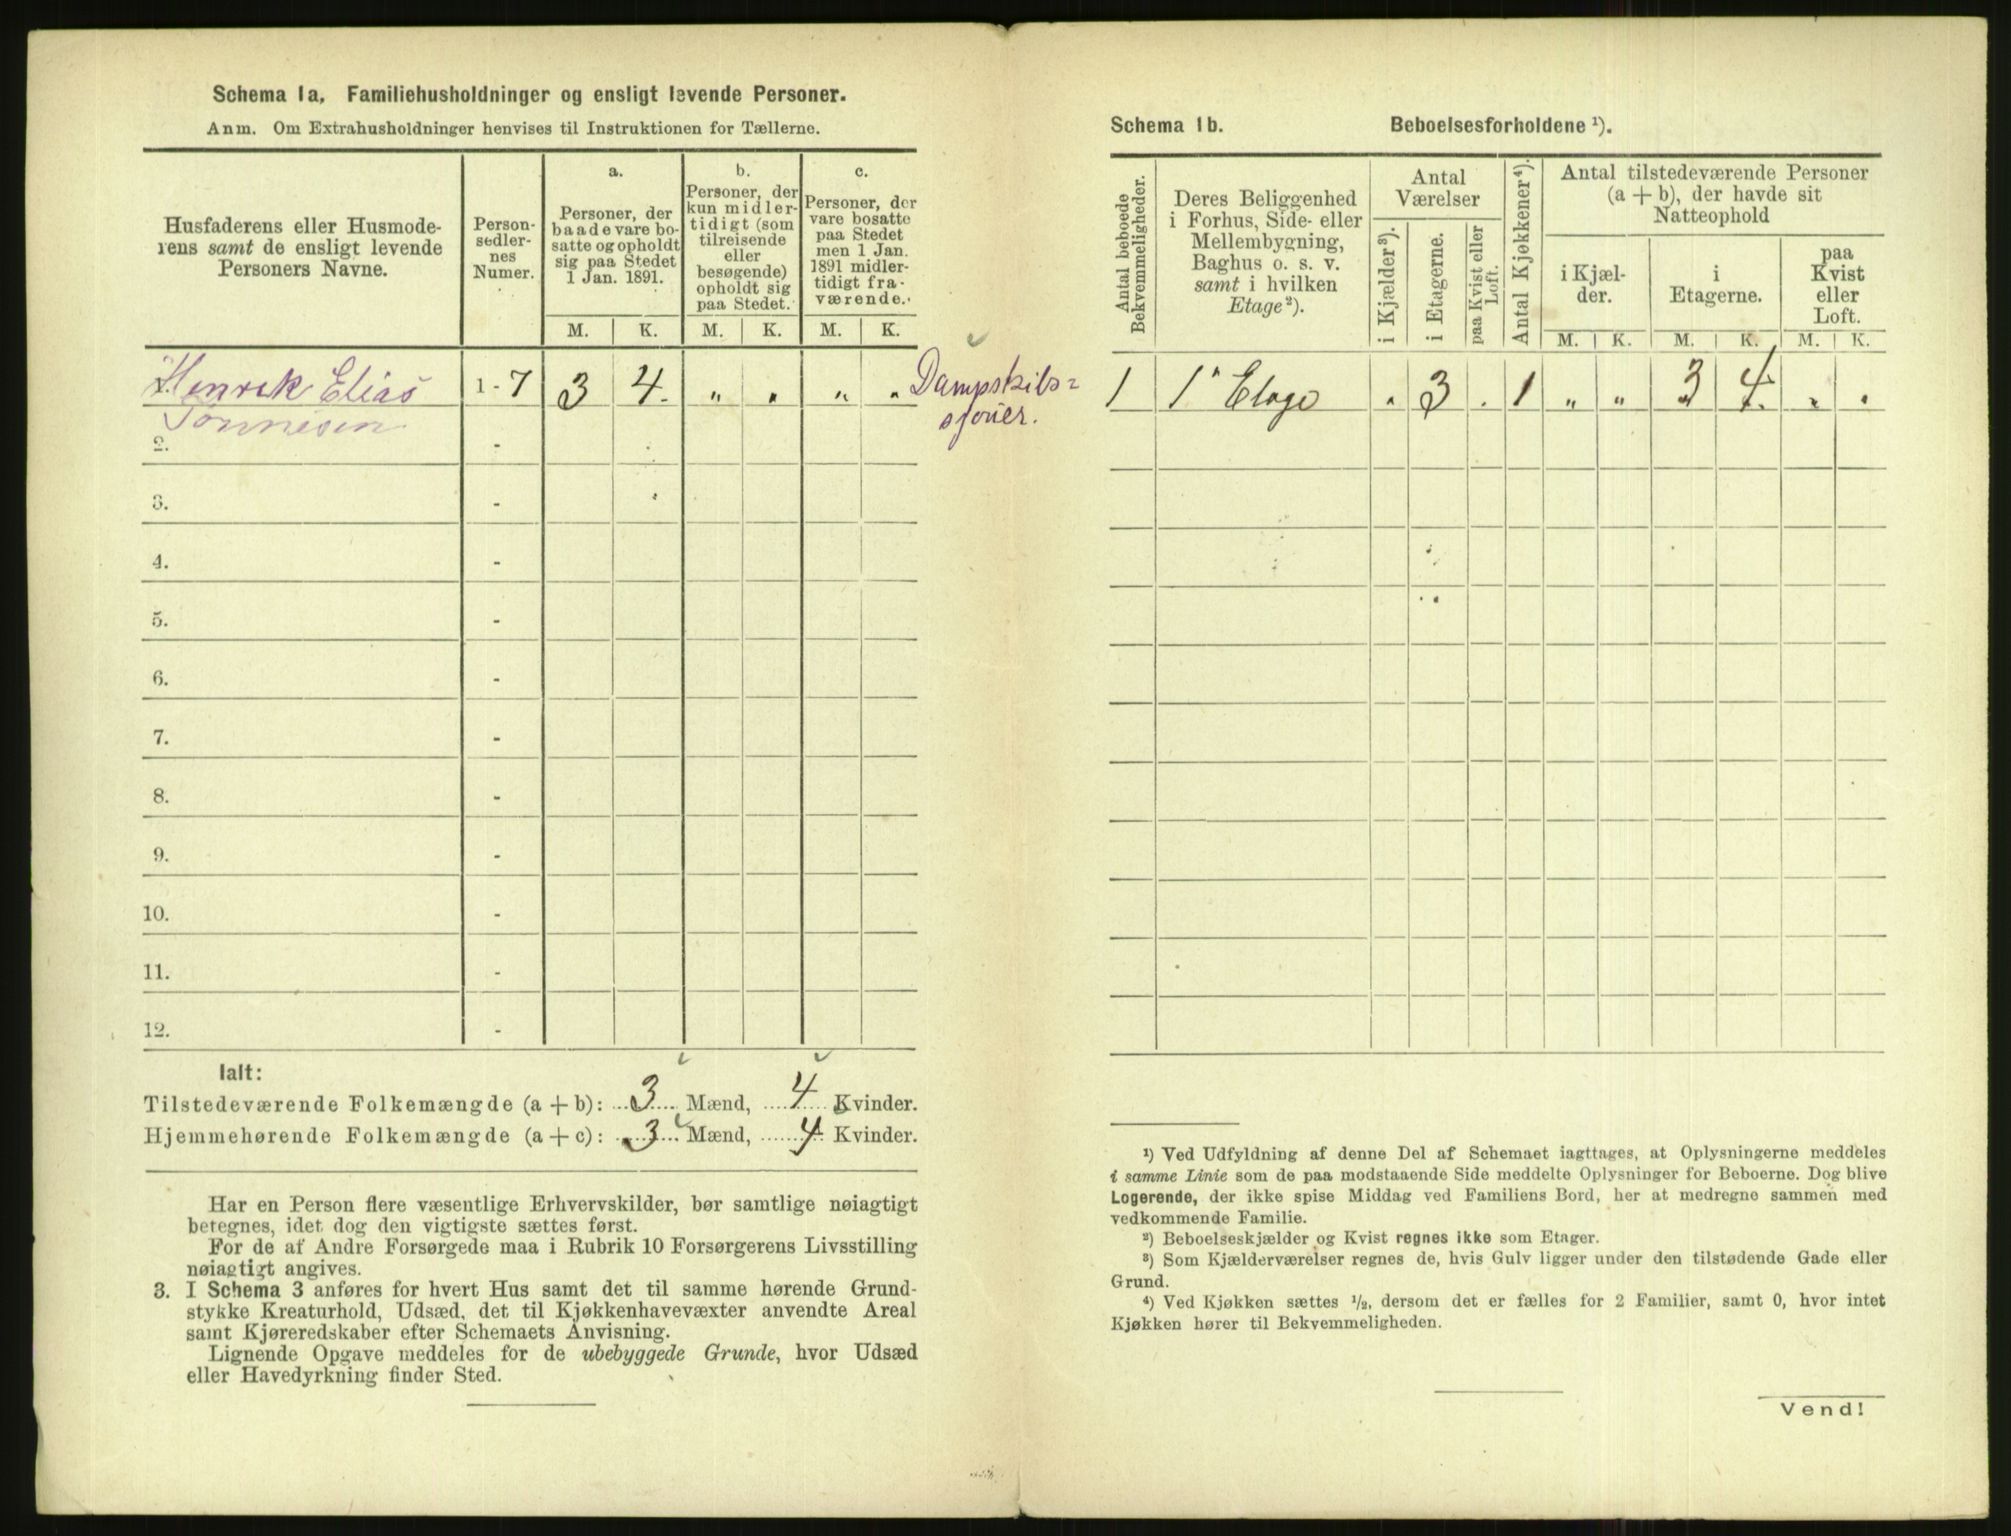 Schema 1a. Familiehusholdninger og ensligt levende Personer.
Anm. Om Extrahusholdninger henvises til Instruktionen for Tællerne.
Husfaderens eller Husmode-
rens samt de ensligt levende
Personers Navne.
Person-
sedler-
nes
Numer.
a.
Personer, der
baade vare bo-
satte og opholdt
sig paa Stedet
1 Jan. 1891.
b.
Personer, der
kun midler-
tidigt (som
tilreisende
eller
besøgende)
opholdt sig
paa Stedet.
c.
Personer, der
vare bosatte
paa Stedet
men 1 Jan.
1891 midler-
tidigt fra-
værende.
M. K. M. K. M. K.
1. Henrik Elias 1 - 7 3 4. „ „ „ „ Dampskibs=
Tønnesen sjøuer.
2. -
3. -
4. -
5. -
6. -
7. -
8. -
9. -
10. -
11. -
12. -
Ialt:
Tilstedeværende Folkemængde (a + b): 3 Mænd, 4 Kvinder.
Hjemmehørende Folkemængde (a + c): 3 Mænd, 4 Kvinder.
Har en Person flere væsentlige Erhvervskilder, bør samtlige nøiagtigt
betegnes, idet dog den vigtigste sættes først.
For de af Andre Forsørgede maa i Rubrik 10 Forsørgerens Livsstilling
nøiagtigt angives.
3. I Schema 3 anføres for hvert Hus samt det til samme hørende Grund-
stykke Kreaturhold, Udsæd, det til Kjøkkenhavevæxter anvendte Areal
samt Kjøreredskaber efter Schemaets Anvisning.
Lignende Opgave meddeles for de ubebyggede Grunde, hvor Udsæd
eller Havedyrkning finder Sted.
Schema 1b. Beboelsesforholdene ¹).
Antal beboede
Bekvemmeligheder.
Deres Beliggenhed
i Forhus, Side- eller
Mellembygning,
Baghus o. s. v.
samt i hvilken
Etage ²).
Antal
Værelser
i Kjælder ³).
i Etagerne.
paa Kvist eller
Loft.
Antal Kjøkkener ⁴).
Antal tilstedeværende Personer
(a + b), der havde sit
Natteophold
i Kjæl-
der.
i
Etagerne.
paa
Kvist
eller
Loft.
M. K. M. K. M. K.
1 1" Etage „ 3 . 1 „ „ 3 4. „ „
¹) Ved Udfyldning af denne Del af Schemaet iagttages, at Oplysningerne meddeles
i samme Linie som de paa modstaaende Side meddelte Oplysninger for Beboerne. Dog blive
Logerende, der ikke spise Middag ved Familiens Bord, her at medregne sammen med
vedkommende Familie.
²) Beboelseskjælder og Kvist regnes ikke som Etager.
³) Som Kjælderværelser regnes de, hvis Gulv ligger under den tilstødende Gade eller
Grund.
⁴) Ved Kjøkken sættes ½, dersom det er fælles for 2 Familier, samt 0, hvor intet
Kjøkken hører til Bekvemmeligheden.
Vend!